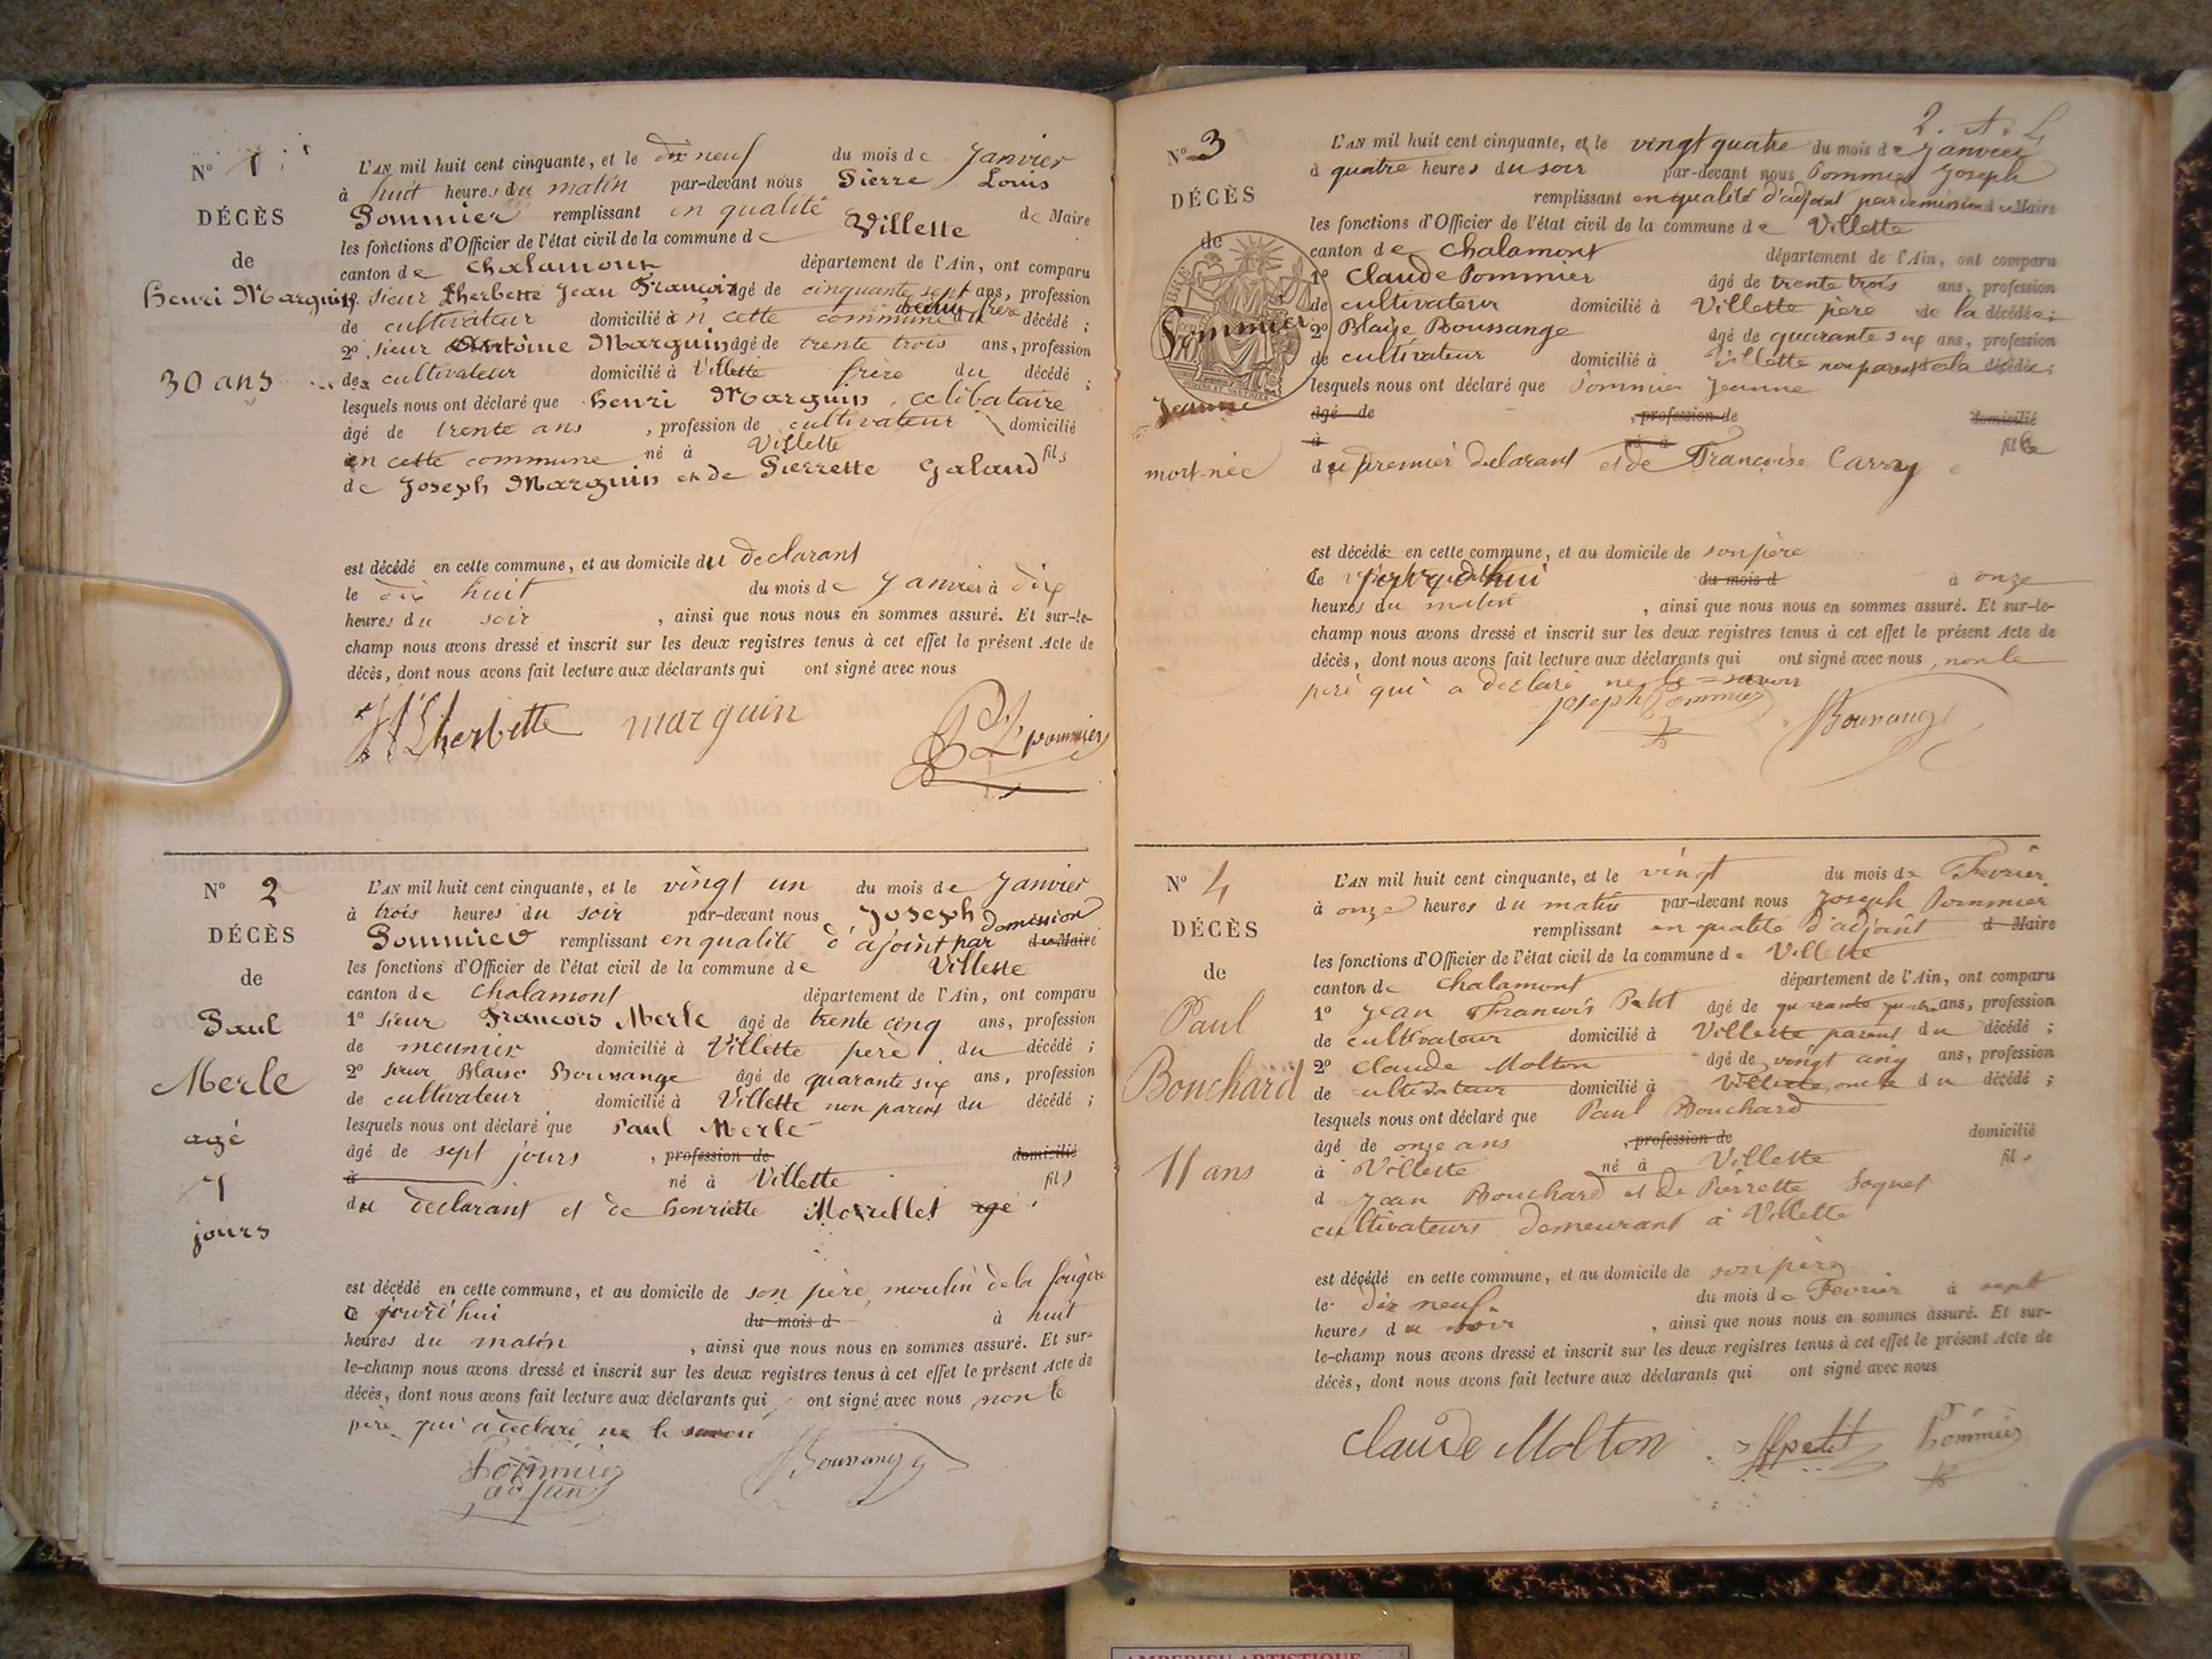 N° 1
DÉCÈS
de
Henri Marguin
30 ans
L'AN mil huit cent cinquante, et le dix neuf du mois de Janvier
à huit heures du matin par-devant nous Pierre Louis
Pommier remplissant en qualité de Maire
les fonctions d'Officier de l'état civil de la commune de Villette
canton de Chalamont département de l'Ain, ont comparu
1° sieur Lherbette Jean François âgé de cinquante sept ans, profession
de cultivateur domicilié en cette commune beau frère du décédé ;
2° sieur Antoine Marguin âgé de trente trois ans, profession
de cultivateur domicilié à Villette frère du décédé ;
lesquels nous ont déclaré que henri Marguin, celibataire
âgé de trente ans , profession de cultivateur domicilié
en cette commune né à Villette fils
de Joseph Marguin et de Pierrette Galand
est décédé en cette commune, et au domicile du declarant
le dix huit du mois de Janvier à dix
heures du soir , ainsi que nous nous en sommes assuré. Et sur-le-
champ nous avons dressé et inscrit sur les deux registres tenus à cet effet le présent Acte de
décès, dont nous avons fait lecture aux déclarants qui ont signé avec nous
Lherbette marguin P L pommier
N° 2
DÉCÈS
de
Paul
Merle
agé
7
jours
L'AN mil huit cent cinquante, et le vingt un du mois de Janvier
à trois heures du soir par-devant nous Joseph
Pommier remplissant en qualité d'ajoint par domission du Maire
les fonctions d'Officier de l'état civil de la commune de Villette
canton de Chalamont département de l'Ain, ont comparu
1° sieur Francois Merle âgé de trente cinq ans, profession
de meunier domicilié à Villette père du décédé ;
2° sieur Blaise Boussange âgé de quarante six ans, profession
de cultivateur domicilié à Villette non parent du décédé ;
lesquels nous ont déclaré que Paul Merle
âgé de sept jours , profession de domicilié
à né à Villette fils
du declarant et de henriette Morellet agé
est décédé en cette commune, et au domicile de son père, moulin de la fougère
ce jourd'hui du mois d à huit
heures du matin , ainsi que nous nous en sommes assuré. Et sur-
le-champ nous avons dressé et inscrit sur les deux registres tenus à cet effet le présent Acte de
décès, dont nous avons fait lecture aux déclarants qui ont signé avec nous non le
père qui a declaré ne le savoir
Pommier Boussange
adjoint
2. A. L
N° 3
DÉCÈS
de
Pommier
Jeanne
mort-née
L'AN mil huit cent cinquante, et le vingt quatre du mois de Janvier
à quatre heures du soir par-devant nous Pommier Joseph
remplissant en qualité d'adjoint par demission du Maire
les fonctions d'Officier de l'état civil de la commune de Villette
canton de Chalamont département de l'Ain, ont comparu
1° Claude Pommier âgé de trente trois ans, profession
de cultivateur domicilié à Villette père de la décédée ;
2° Blaise Boussange âgé de quarante six ans, profession
de cultivateur domicilié à Villette non parent de la décédée ;
lesquels nous ont déclaré que Pommier Jeanne
âgé de , profession de domicilié
à né à fille
du premier declarant et de Françoise Carry
est décédée en cette commune, et au domicile de son père
le du mois d à onze
heures du matin , ainsi que nous nous en sommes assuré. Et sur-le-
champ nous avons dressé et inscrit sur les deux registres tenus à cet effet le présent Acte de
décès, dont nous avons fait lecture aux déclarants qui ont signé avec nous, non le
père qui a declaré ne le savoir
Joseph Pommier Boussange
N° 4
DÉCÈS
de
Paul
Bouchard
11 ans
L'AN mil huit cent cinquante, et le vingt du mois de Fevrier
à onze heures du matin par-devant nous Joseph Pommier
remplissant en qualité d'adjoint d Maire
les fonctions d'Officier de l'état civil de la commune de Villette
canton de Chalamont département de l'Ain, ont comparu
1° Jean Francois Petit âgé de quarante quatre ans, profession
de cultivateur domicilié à Villette parent du décédé ;
2° Claude Molton âgé de vingt cinq ans, profession
de cultivateur domicilié à Villette oncle du décédé ;
lesquels nous ont déclaré que Paul Bouchard
âgé de onze ans , profession de domicilié
à Villette né à Villette fils
d Jean Bouchard et de Pierrette Soquet
cultivateurs demeurant à Villette
est décédé en cette commune, et au domicile de son père
le dix neuf du mois de Fevrier à sept
heures du soir , ainsi que nous nous en sommes assuré. Et sur-
le-champ nous avons dressé et inscrit sur les deux registres tenus à cet effet le présent Acte de
décès, dont nous avons fait lecture aux déclarants qui ont signé avec nous
Claude Molton petit Pommier